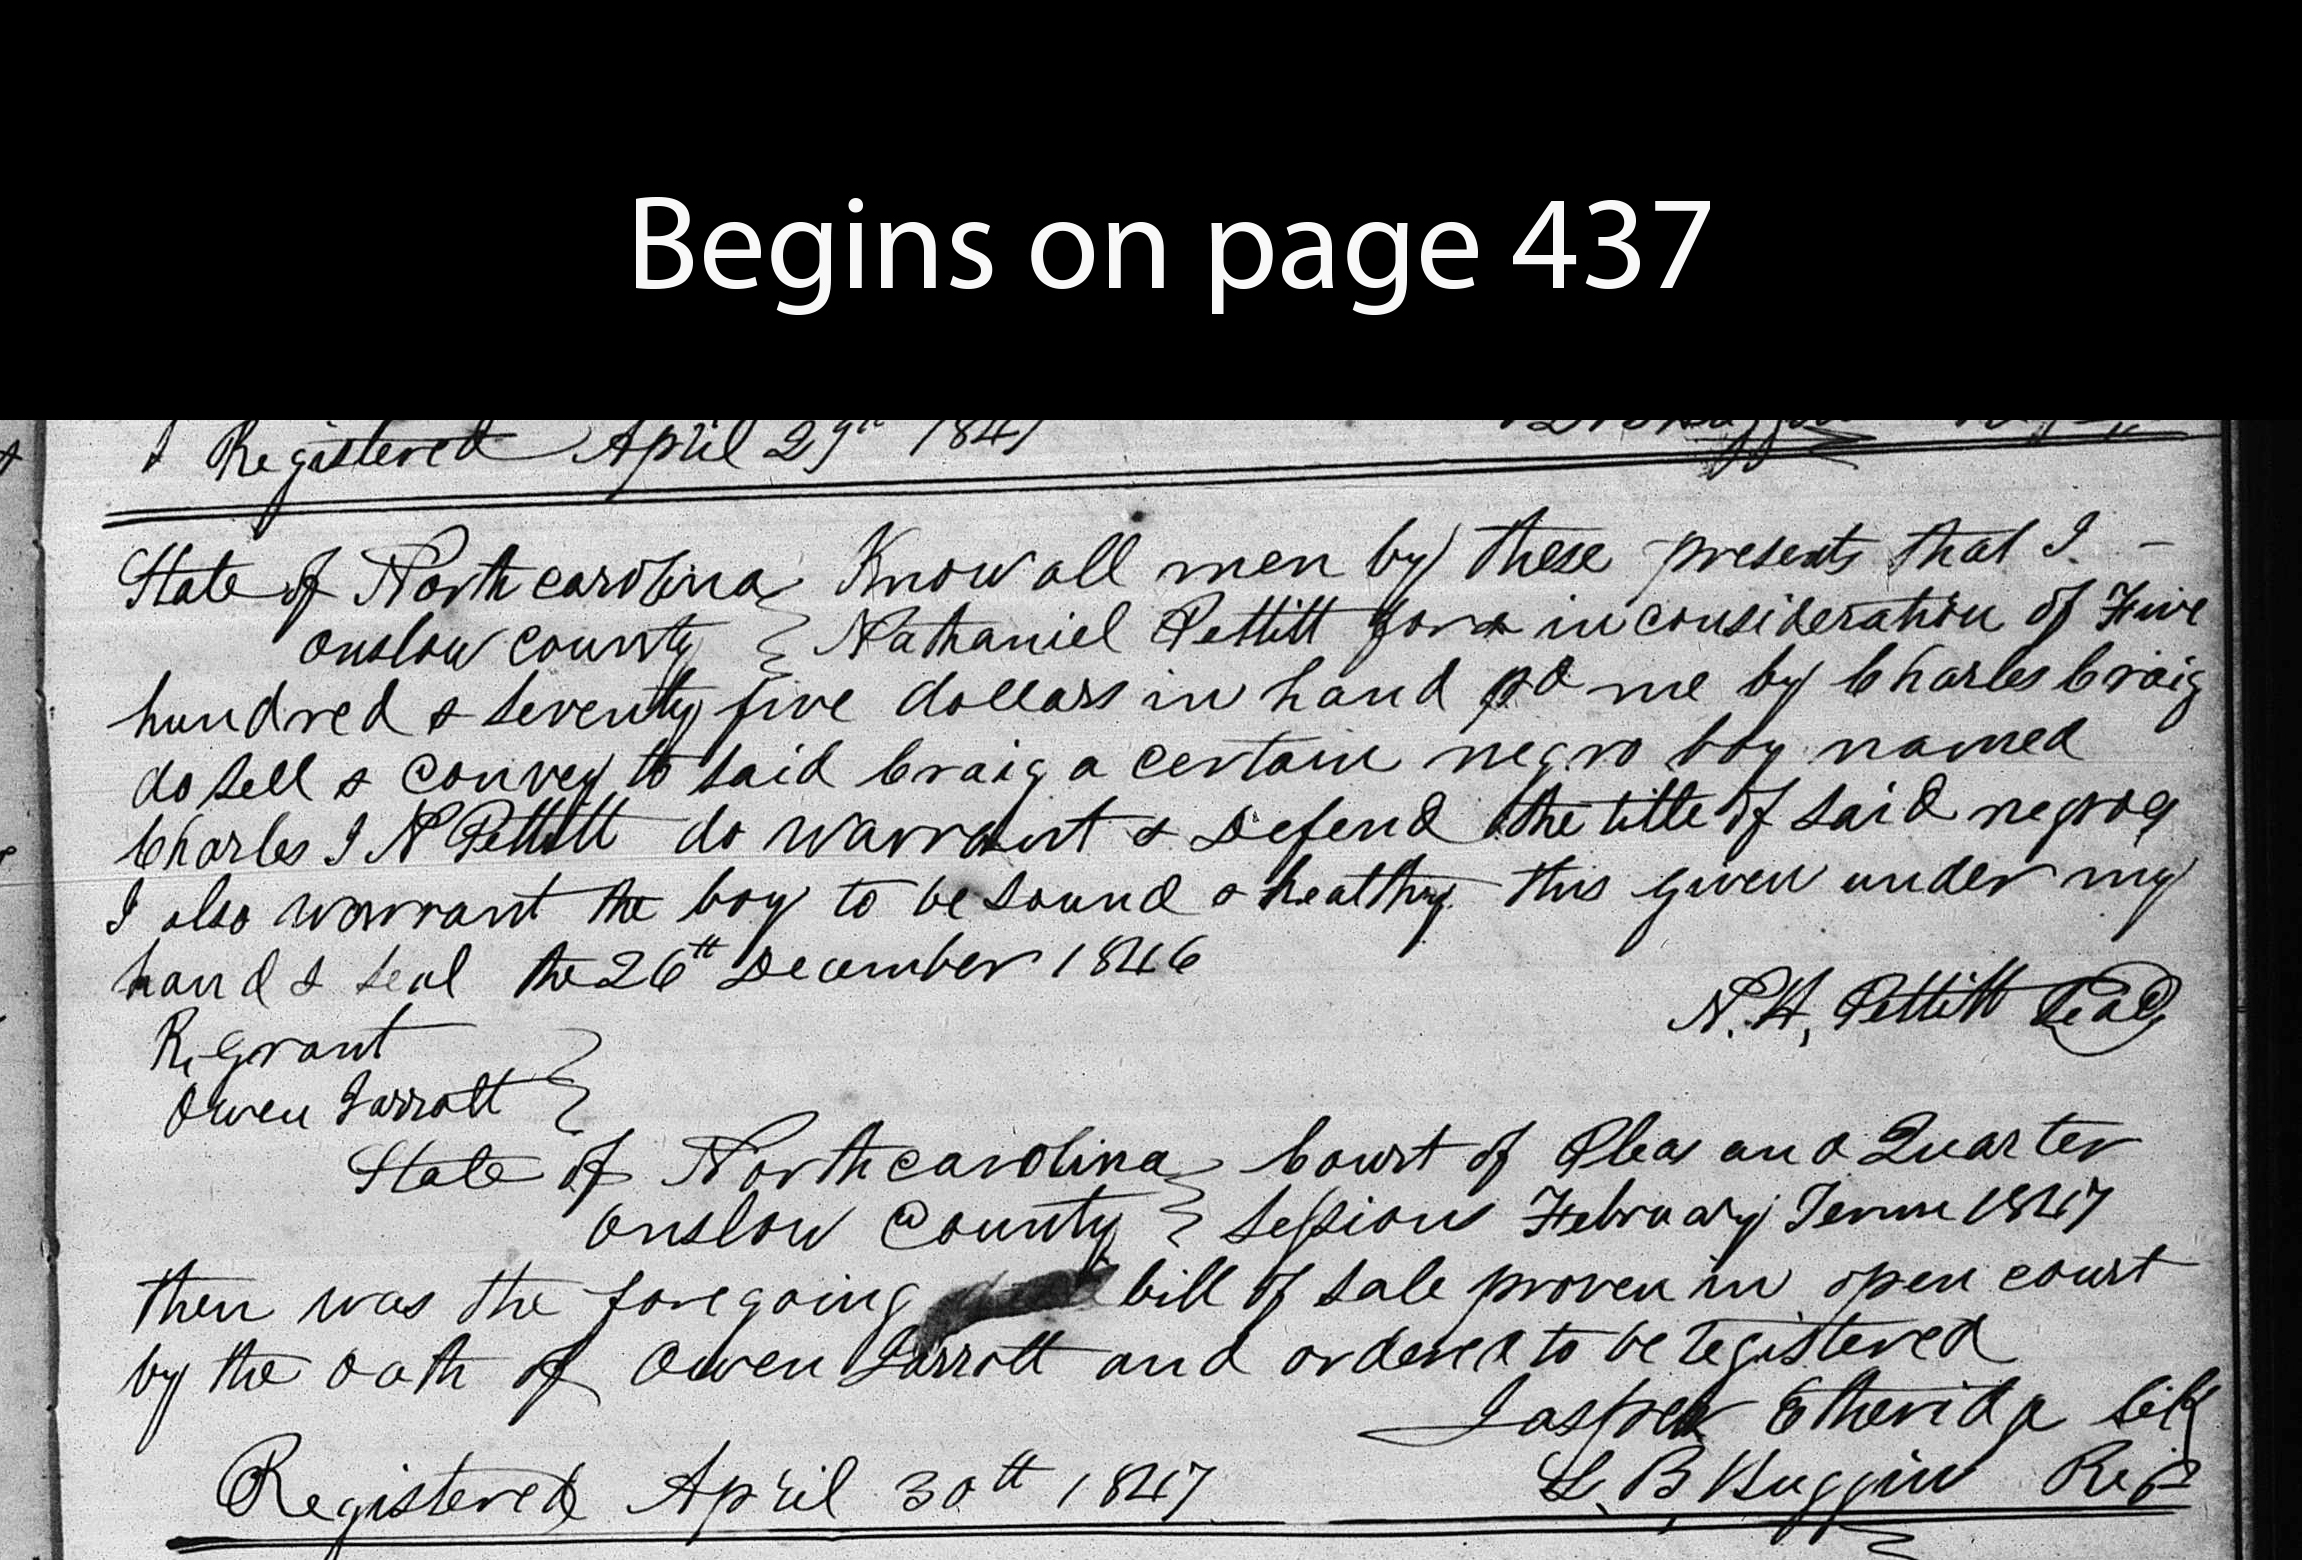 Begins on page 437
Registered April 29th 1847
State of North carolina Know all men by these presents that I. -
Onslow county Nathaniel Pettitt for & in consideration of Five
hundred & seventy five dollars in hand pd me by Charles Craig
do sell & convey to said Craig a certain negro boy named
Charles I N Pettitt do warrant & Defend the title of said negro
I also warrant the boy to be sound & healthy this given under my
hand & seal the 26th December 1846
N. H, Pettitt Seal
R, Grant
Owen Jarrott
State of North carolina Court of Pleas and Quarter
Onslow County Sessions February Term 1847
then was the foregoing bill of sale proven in open court
by the oath of Owen Jarrott and ordered to be registered
Jasper Etheridge Clk
Registered April 30th 1847 L. B. Huggin Reg